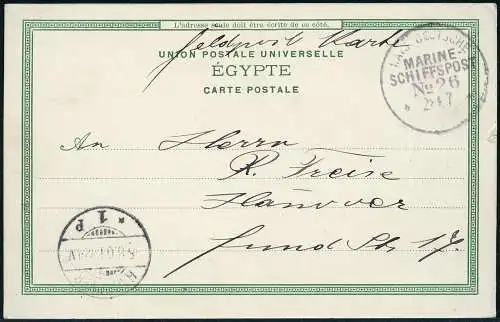 L'adresse seule doit être écrite de ce côté.
Feldpost Karte
UNION POSTALE UNIVERSELLE
ÉGYPTE
CARTE POSTALE
DEUTSCHE
MARINE-
SCHIFFSPOST
No 26
An Herrn
R. Freise
Hannover
Str. 17.
* 1 P